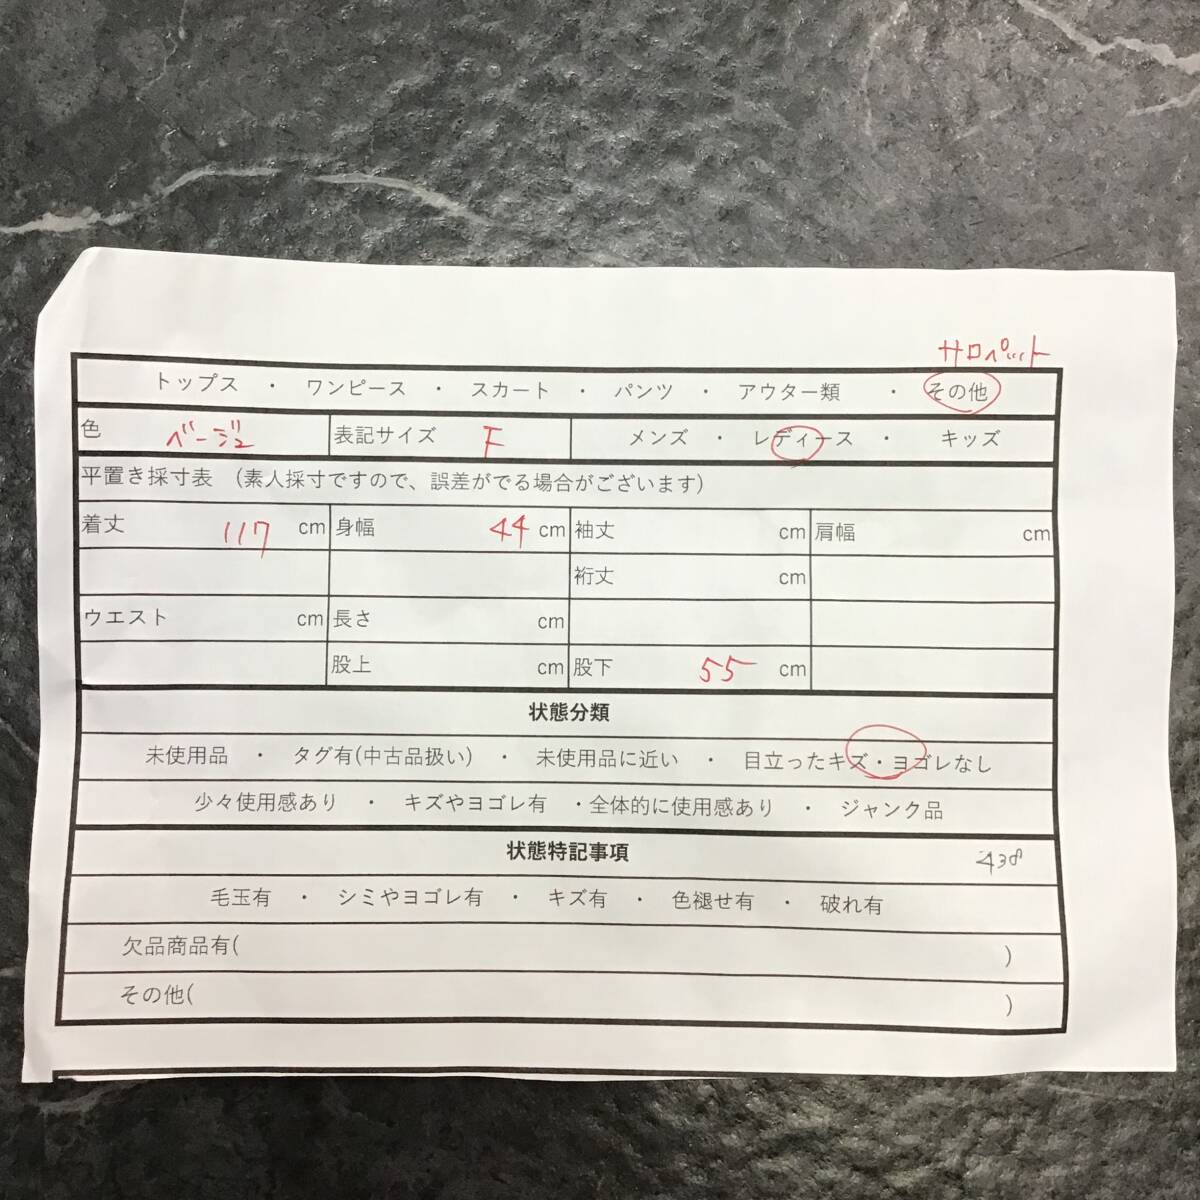 サロペット
トップス ・ ワンピース ・ スカート ・ パンツ ・ アウター類 ・ その他
色 ベージュ 表記サイズ F メンズ ・ レディース ・ キッズ
平置き採寸表 (素人採寸ですので、誤差がでる場合がございます)
着丈 117 cm 身幅 44 cm 袖丈 cm 肩幅 cm
裄丈 cm
ウエスト cm 長さ cm
股上 cm 股下 55 cm
状態分類
未使用品 ・ タグ有(中古品扱い) ・ 未使用品に近い ・ 目立ったキズ・ヨゴレなし
少々使用感あり ・ キズやヨゴレ有 ・全体的に使用感あり ・ ジャンク品
状態特記事項 438
毛玉有 ・ シミやヨゴレ有 ・ キズ有 ・ 色褪せ有 ・ 破れ有
欠品商品有( )
その他( )